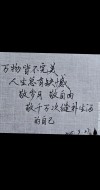 万物皆不完美
人生总有缺憾
敬岁月 敬自由
敬千万次缝补生活
的自己